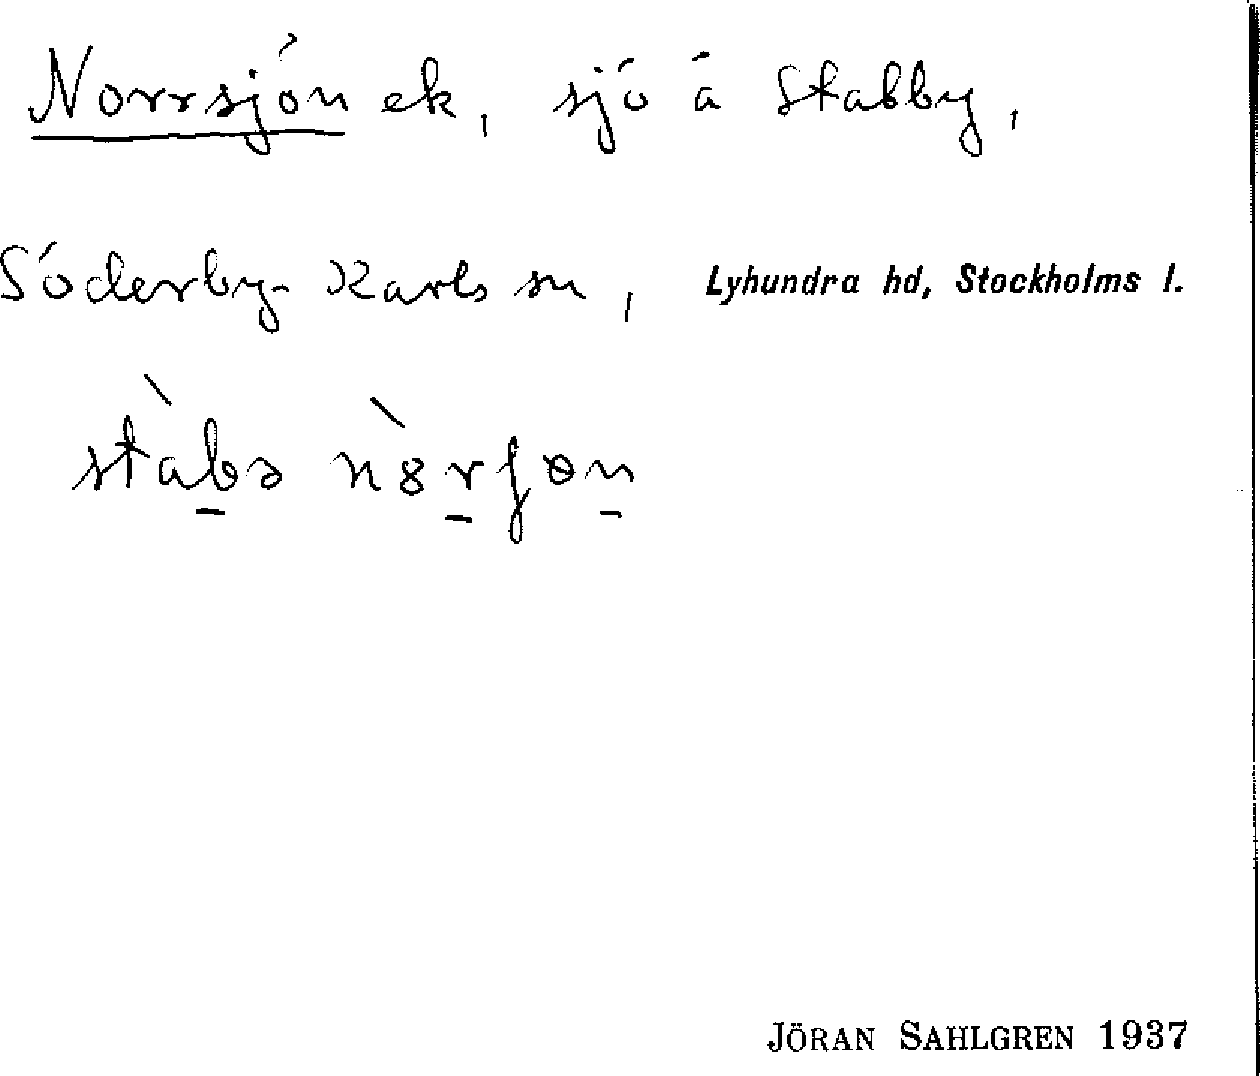 Norrsjön ek, sjö å Stabby,
Söderby-Karls sn, Lyhundra hd, Stockholms l.
stàbə nȍrʃɵn
JÖRAN SAHLGREN 1937